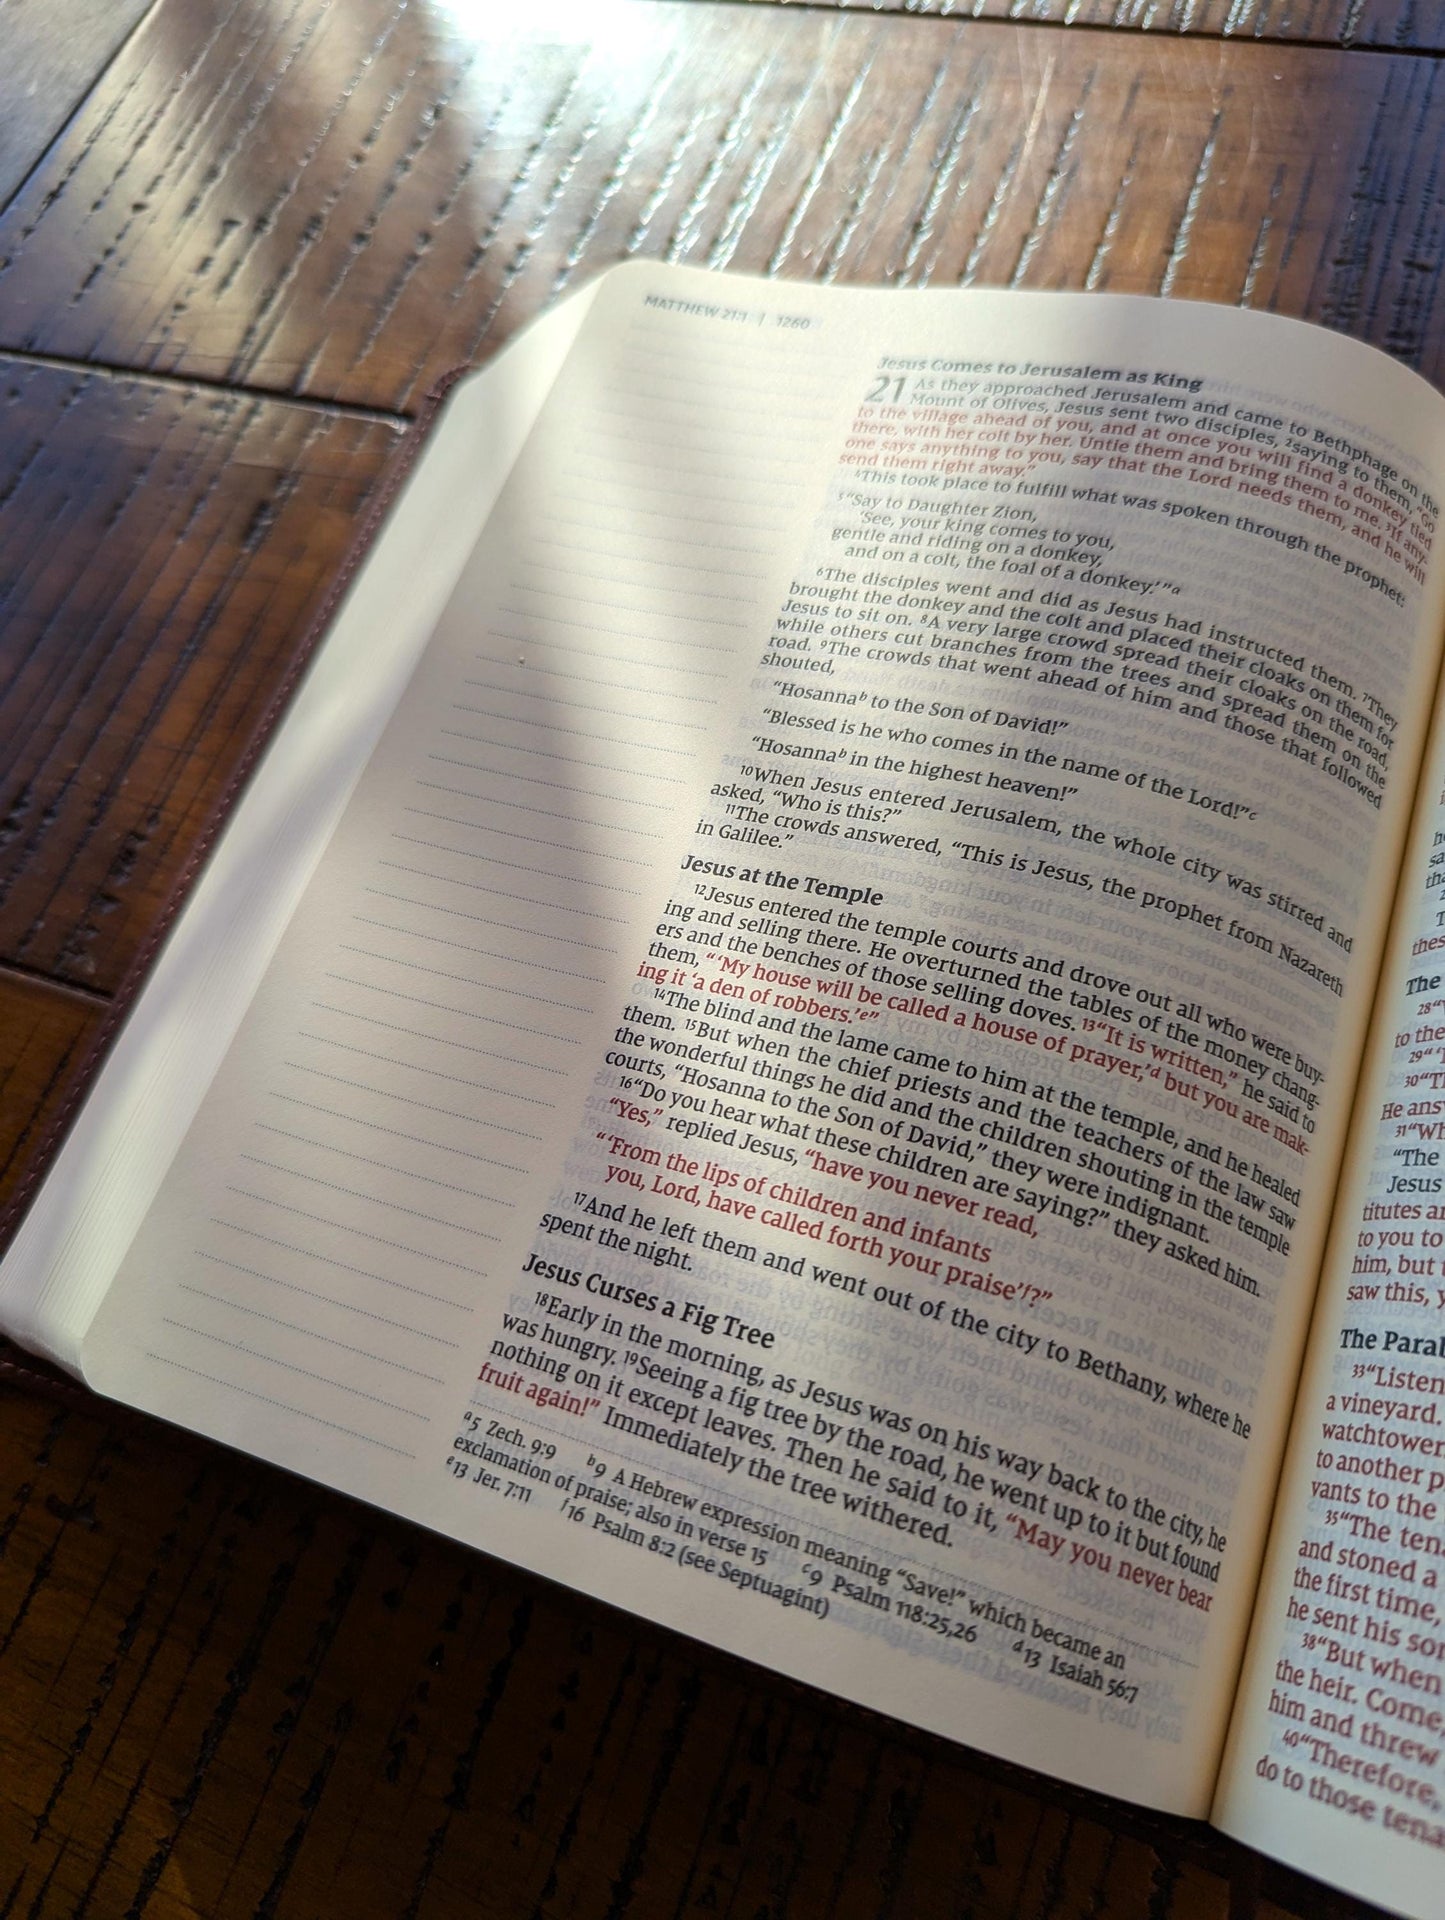 MATTHEW 21:1 | 1260
Jesus Comes to Jerusalem as King
21 As they approached Jerusalem and came to Bethphage on the
Mount of Olives, Jesus sent two disciples, ²saying to them, “Go
to the village ahead of you, and at once you will find a donkey tied
there, with her colt by her. Untie them and bring them to me. ³If any-
one says anything to you, say that the Lord needs them, and he will
send them right away.”
⁴This took place to fulfill what was spoken through the prophet:
⁵“Say to Daughter Zion,
‘See, your king comes to you,
gentle and riding on a donkey,
and on a colt, the foal of a donkey.’ ”a
⁶The disciples went and did as Jesus had instructed them. ⁷They
brought the donkey and the colt and placed their cloaks on them for
Jesus to sit on. ⁸A very large crowd spread their cloaks on the road,
while others cut branches from the trees and spread them on the
road. ⁹The crowds that went ahead of him and those that followed
shouted,
“Hosannaᵇ to the Son of David!”
“Blessed is he who comes in the name of the Lord!”c
“Hosannaᵇ in the highest heaven!”
¹⁰When Jesus entered Jerusalem, the whole city was stirred and
asked, “Who is this?”
¹¹The crowds answered, “This is Jesus, the prophet from Nazareth
in Galilee.”
Jesus at the Temple
¹²Jesus entered the temple courts and drove out all who were buy-
ing and selling there. He overturned the tables of the money chang-
ers and the benches of those selling doves. ¹³“It is written,” he said to
them, “ ‘My house will be called a house of prayer,’d but you are mak-
ing it ‘a den of robbers.’e”
¹⁴The blind and the lame came to him at the temple, and he healed
them. ¹⁵But when the chief priests and the teachers of the law saw
the wonderful things he did and the children shouting in the temple
courts, “Hosanna to the Son of David,” they were indignant.
¹⁶“Do you hear what these children are saying?” they asked him.
“Yes,” replied Jesus, “have you never read,
“ ‘From the lips of children and infants
you, Lord, have called forth your praise’f?”
¹⁷And he left them and went out of the city to Bethany, where he
spent the night.
Jesus Curses a Fig Tree
¹⁸Early in the morning, as Jesus was on his way back to the city, he
was hungry. ¹⁹Seeing a fig tree by the road, he went up to it but found
nothing on it except leaves. Then he said to it, “May you never bear
fruit again!” Immediately the tree withered.
a5 Zech. 9:9 b9 A Hebrew expression meaning “Save!” which became an
exclamation of praise; also in verse 15 c9 Psalm 118:25,26 d13 Isaiah 56:7
e13 Jer. 7:11 f16 Psalm 8:2 (see Septuagint)
The
28“
to the
29“
30“
He ans
31“
“The
Jesus
titutes
to you to
him, but
saw this,
The
33“Listen
a vineyard.
watchtower
to another
vants to the
35“The
and stoned a
the first time,
he sent his
38“But when
the heir. Come,
him and threw
40“Therefore,
do to those